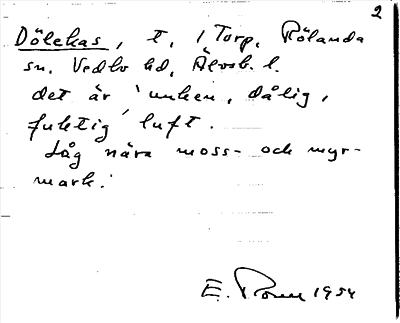 2
Dölekas, t, 1 Torp, Rölanda
sn. Vedbo hd, Älvsb. l.
det är 'unken, dålig,
fuktig' luft.
Låg nära moss- och myr-
mark.
E. 1954